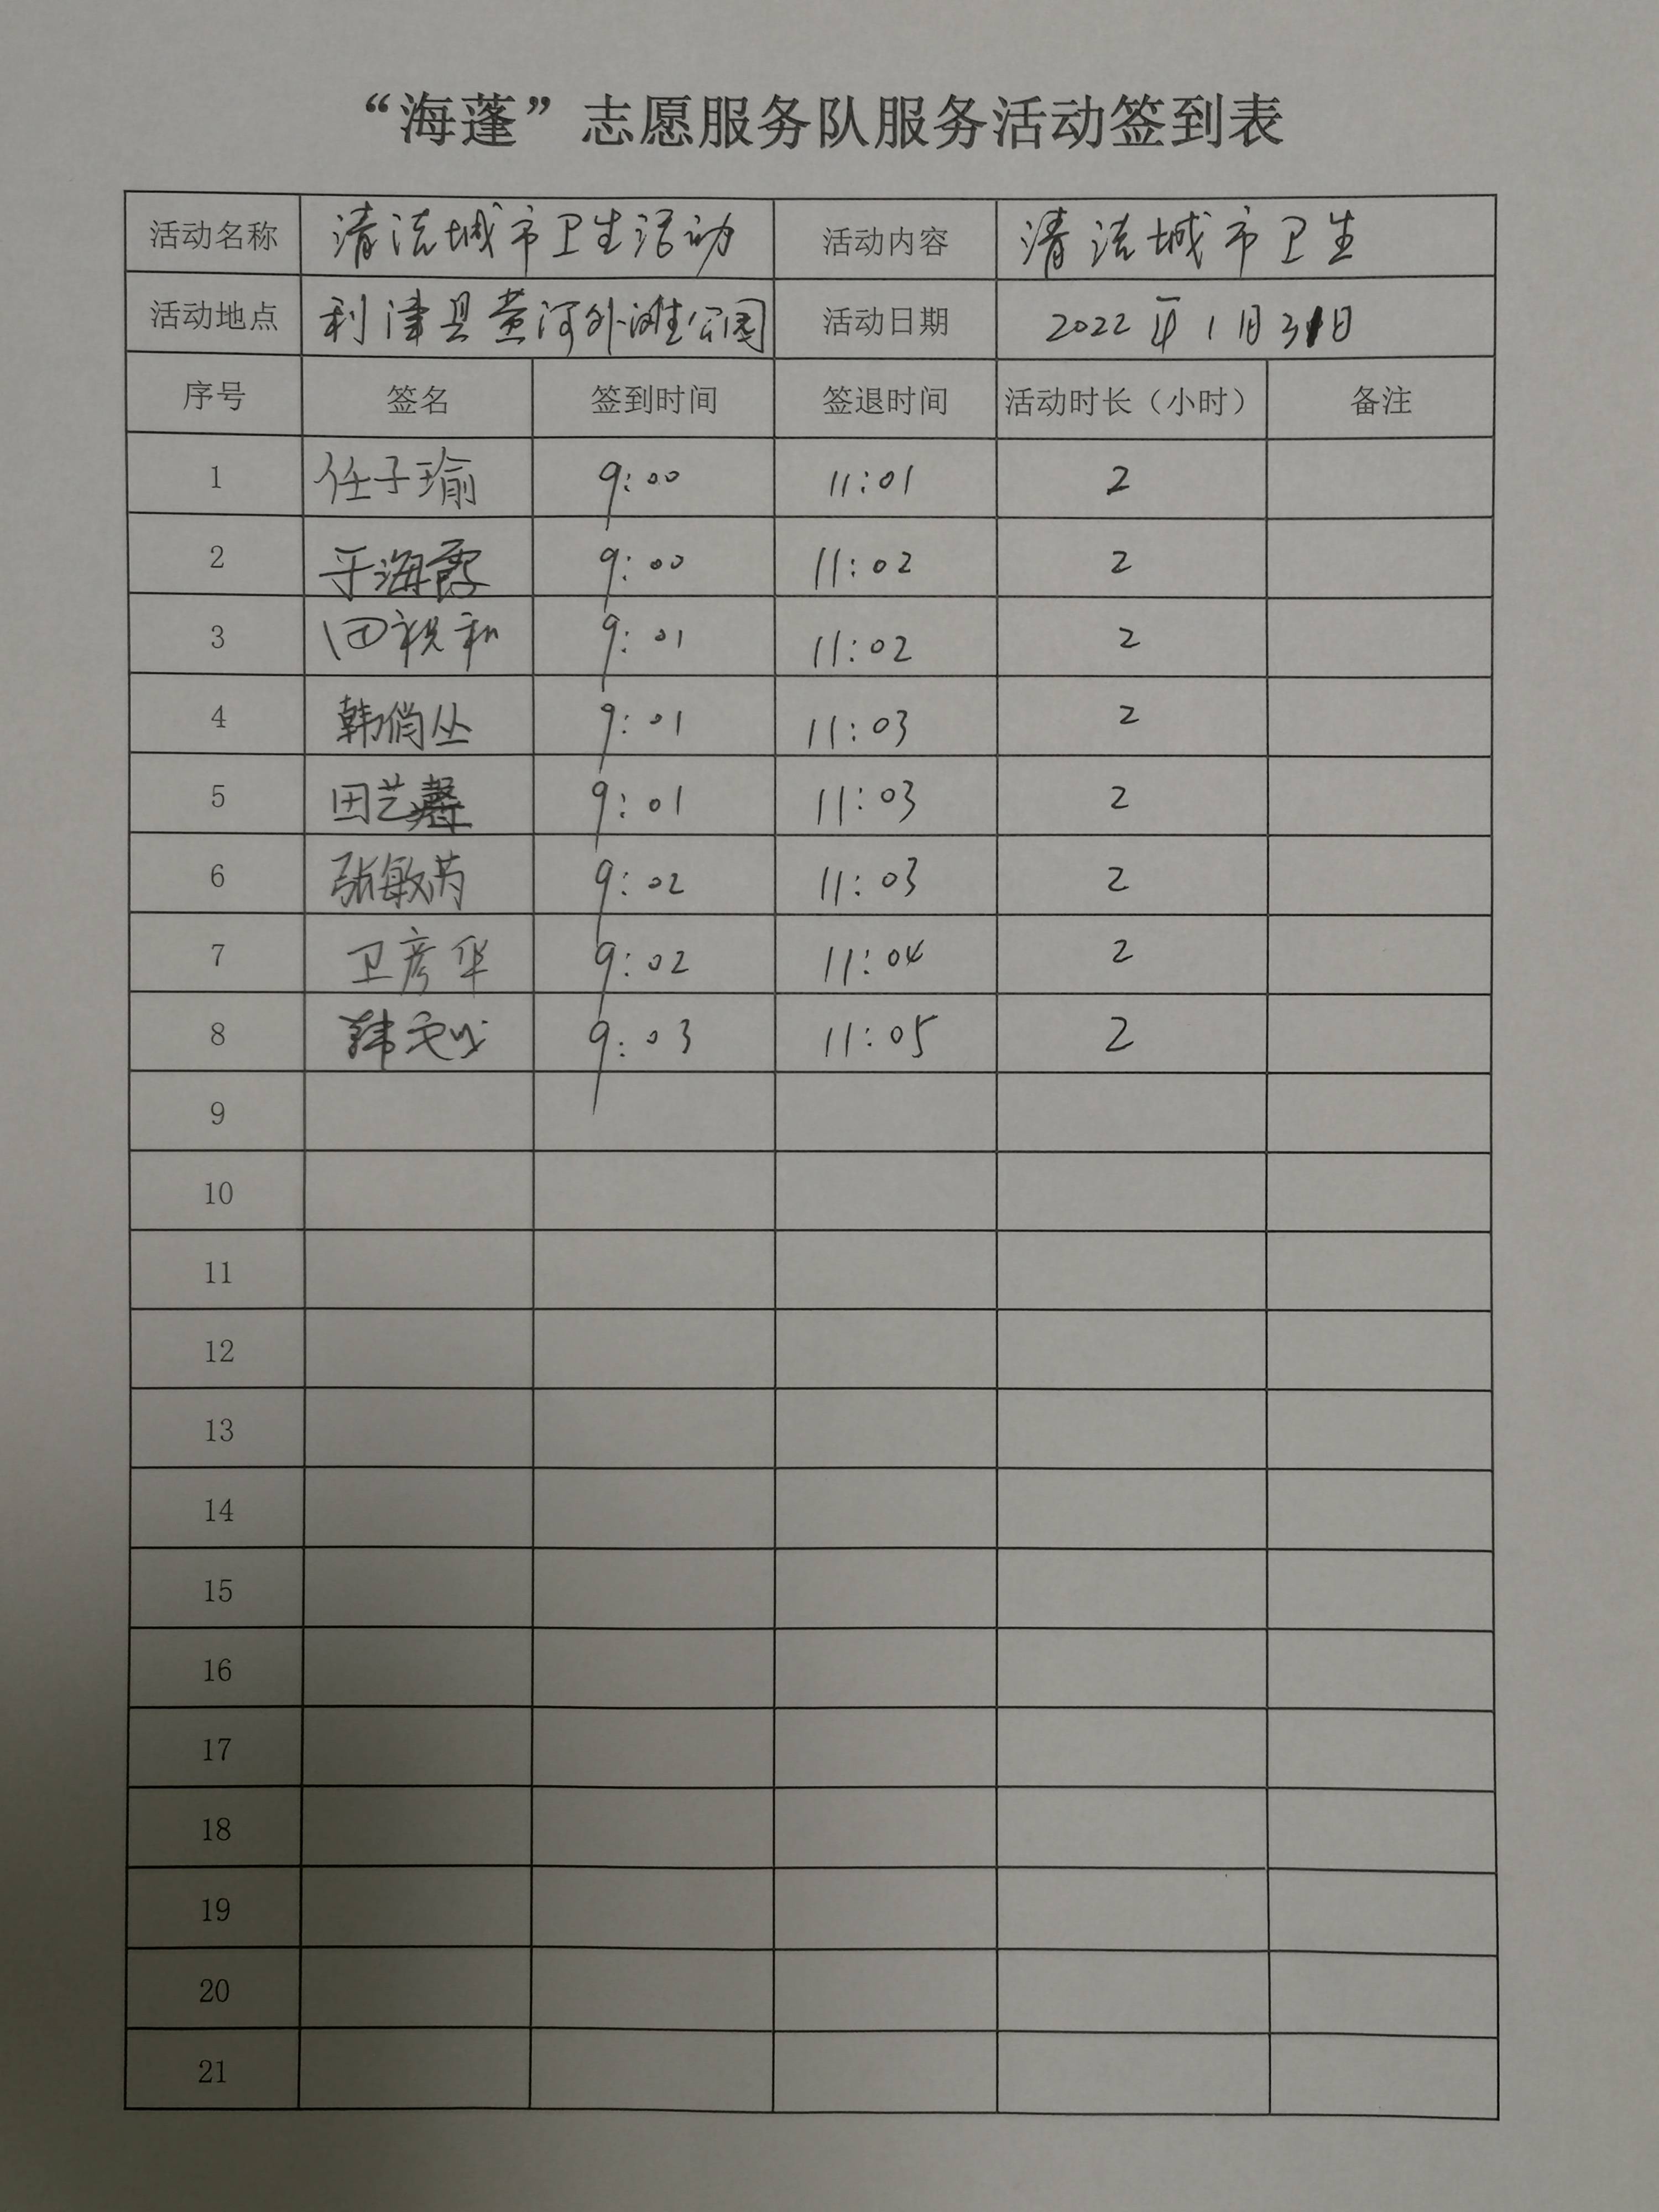 “海蓬”志愿服务队服务活动签到表
活动名称 清洁城市卫生活动 活动内容 清洁城市卫生
活动地点 利津县黄河外滩公园 活动日期 2022年1月31日
序号 签名 签到时间 签退时间 活动时长（小时） 备注
1 任子瑜 9:00 11:01 2
2 于海霞 9:00 11:02 2
3 田祝和 9:01 11:02 2
4 韩俏丛 9:01 11:03 2
5 田艺馨 9:01 11:03 2
6 张敏芮 9:02 11:03 2
7 卫彦华 9:02 11:04 2
8 韩 9:03 11:05 2
9
10
11
12
13
14
15
16
17
18
19
20
21